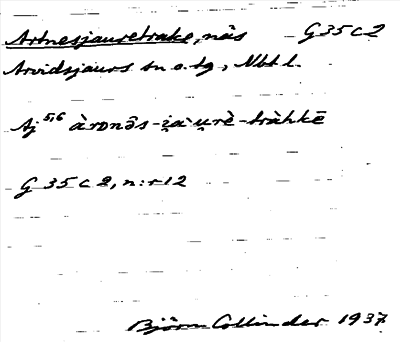 Artnesjauretrake, näs G35c2
Arvidsjaurs sn o. tg, Nbtl.
Aj 5,6 àrnnôs-i̯àu̯rè-tràhkē
G 35 c 2, n:r 12
Björn Collinder 1937